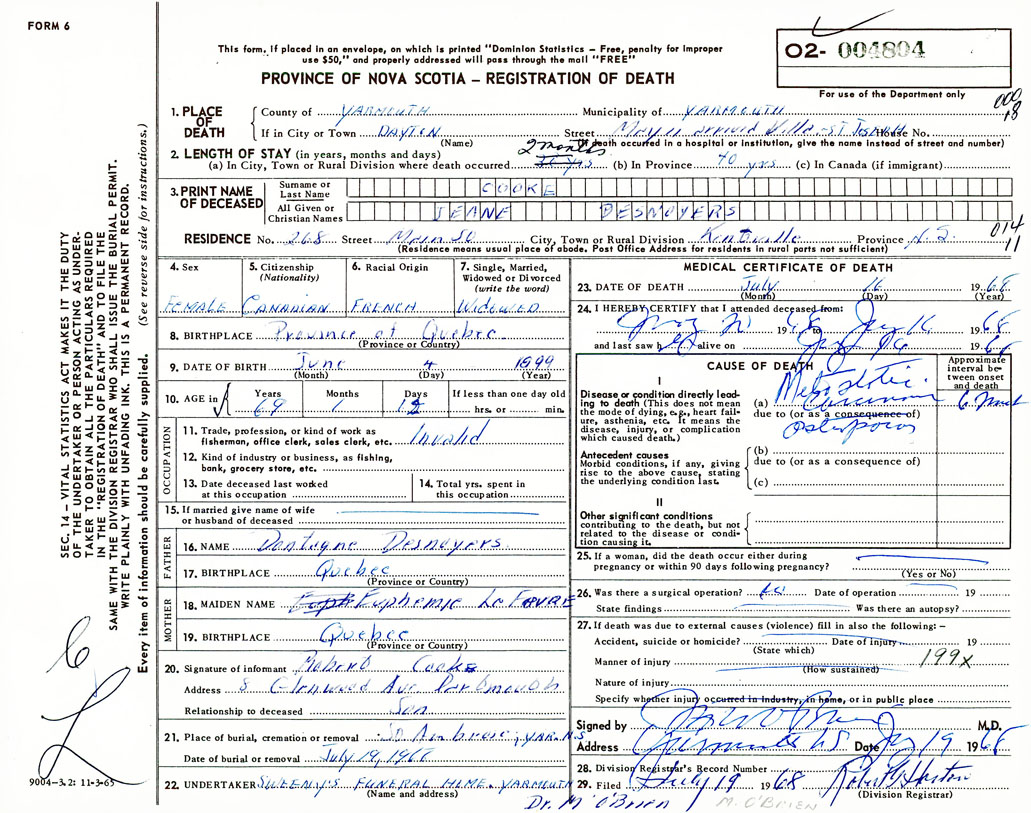 FORM 6
O2- 004804
This form, if placed in an envelope, on which is printed "Dominion Statistics – Free, penalty for improper
use $50," and properly addressed will pass through the mail "FREE"
PROVINCE OF NOVA SCOTIA – REGISTRATION OF DEATH
For use of the Department only
1. PLACE OF DEATH
County of YARMOUTH Municipality of YARMOUTH
If in City or Town DAYTON Street Villa - ST JOSEPH House No.
(Name) (If death occurred in a hospital or institution, give the name instead of street and number)
2. LENGTH OF STAY (in years, months and days) 2 months
(a) In City, Town or Rural Division where death occurred yrs (b) In Province 70 yrs (c) In Canada (if immigrant)
3. PRINT NAME OF DECEASED
Surname or Last Name COOKE
All Given or Christian Names JEANE DESMOYERS
RESIDENCE No. 268 Street Main St City, Town or Rural Division Kentville Province N.S.
(Residence means usual place of abode. Post Office Address for residents in rural parts not sufficient)
014
11
4. Sex FEMALE
5. Citizenship (Nationality) CANADIAN
6. Racial Origin FRENCH
7. Single, Married, Widowed or Divorced (write the word) WIDOWED
8. BIRTHPLACE Province of Quebec
(Province or Country)
9. DATE OF BIRTH June 4 1899
(Month) (Day) (Year)
10. AGE in Years 69 Months 1 Days 12 If less than one day old hrs. or min.
OCCUPATION
11. Trade, profession, or kind of work as fisherman, office clerk, sales clerk, etc. Invalid
12. Kind of industry or business, as fishing, bank, grocery store, etc.
13. Date deceased last worked at this occupation
14. Total yrs. spent in this occupation
15. If married give name of wife or husband of deceased
FATHER
16. NAME Dontagne Desnoyers
17. BIRTHPLACE Quebec
(Province or Country)
MOTHER
18. MAIDEN NAME Euphemie Le FAVRE
19. BIRTHPLACE Quebec
(Province or Country)
20. Signature of informant Robert Cooke
Address 8 Glenwood Ave Dartmouth
Relationship to deceased Son
21. Place of burial, cremation or removal St Ambrose, YAR. N.S
Date of burial or removal July 19, 1968
22. UNDERTAKER SWEENY'S FUNERAL HOME. YARMOUTH
(Name and address)
MEDICAL CERTIFICATE OF DEATH
23. DATE OF DEATH July 16 1968
(Month) (Day) (Year)
24. I HEREBY CERTIFY that I attended deceased from:
1968 to July 16 1968
and last saw h alive on July 16 1968
CAUSE OF DEATH
Approximate interval between onset and death
I
Disease or condition directly leading to death (This does not mean the mode of dying, e.g., heart failure, asthenia, etc. It means the disease, injury, or complication which caused death.)
(a) Metastatic Carcinoma
due to (or as a consequence of)
Antecedent causes
Morbid conditions, if any, giving rise to the above cause, stating the underlying condition last.
(b)
due to (or as a consequence of)
(c)
II
Other significant conditions
contributing to the death, but not related to the disease or condition causing it.
25. If a woman, did the death occur either during
pregnancy or within 90 days following pregnancy?
(Yes or No)
26. Was there a surgical operation? Date of operation 19
State findings Was there an autopsy?
27. If death was due to external causes (violence) fill in also the following: –
Accident, suicide or homicide? Date of Injury 19
(State which)
Manner of injury 199x
(How sustained)
Nature of injury
Specify whether injury occurred in industry, in home, or in public place
Signed by M.D.
Address Yarmouth NS Date July 19 1968
28. Division Registrar's Record Number
29. Filed July 19 1968
(Division Registrar)
Dr. M O'BRIEN
M. O'BRIEN
SEC. 14 – VITAL STATISTICS ACT MAKES IT THE DUTY
OF THE UNDERTAKER OR PERSON ACTING AS UNDER-
TAKER TO OBTAIN ALL THE PARTICULARS REQUIRED
IN THE "REGISTRATION OF DEATH" AND TO FILE THE
SAME WITH THE DIVISION REGISTRAR WHO SHALL ISSUE THE BURIAL PERMIT.
WRITE PLAINLY WITH UNFADING INK. THIS IS A PERMANENT RECORD.
Every item of information should be carefully supplied. (See reverse side for instructions.)
9004-3.2: 11-3-65